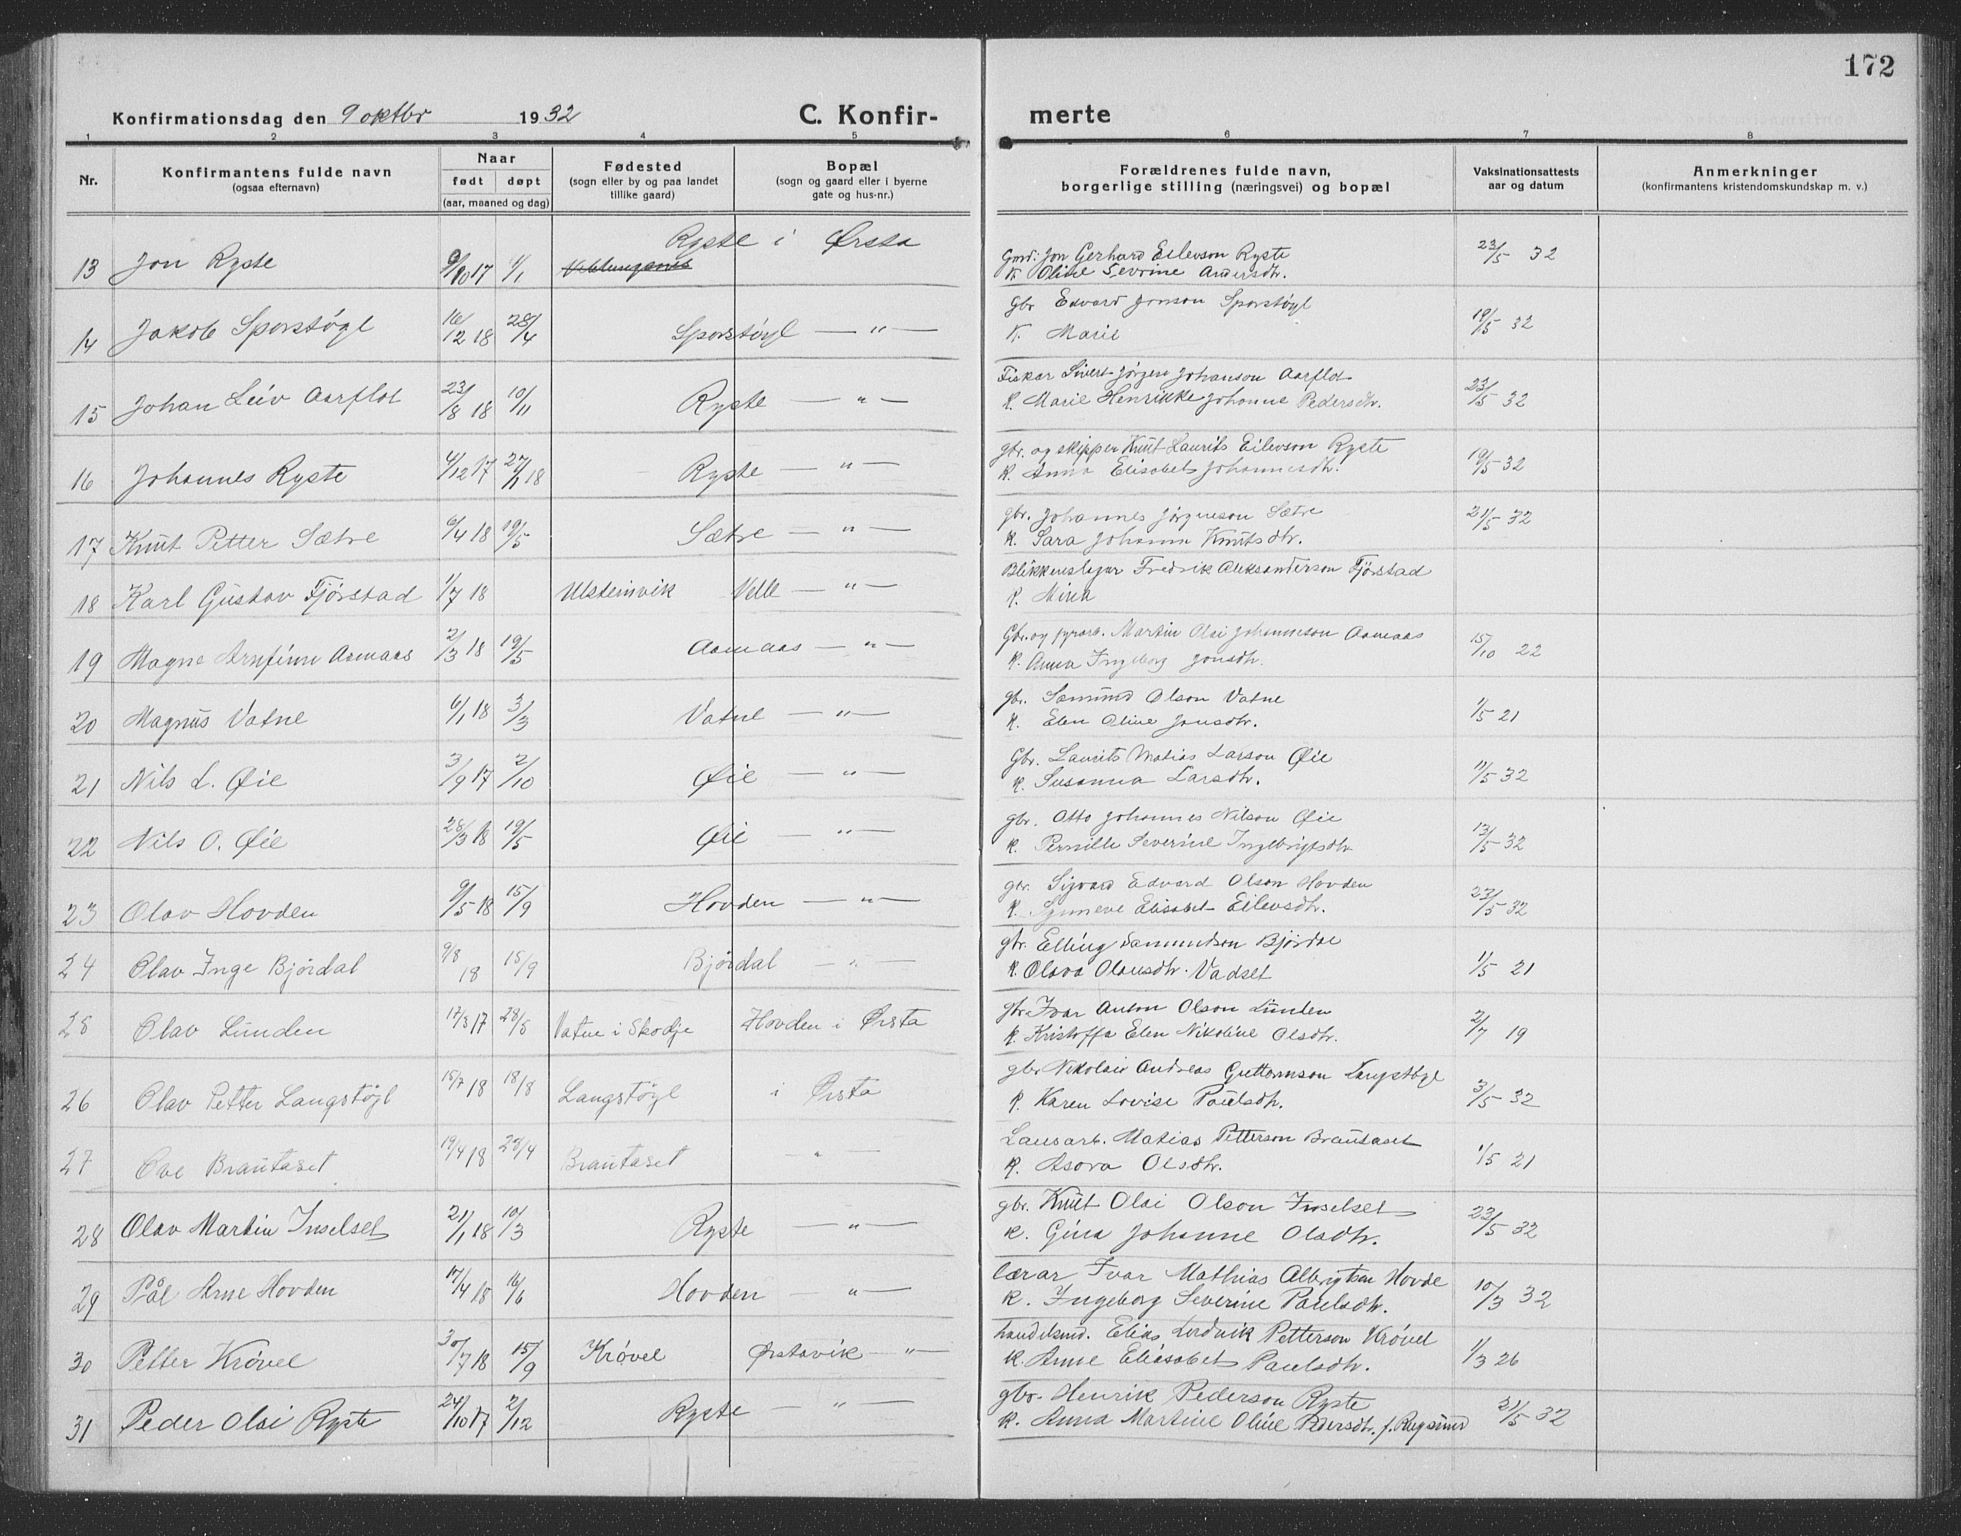 172
Konfirmationsdag den 9 oktbr 1932 C. Konfir- merte
1 2 3 4 5 6 7 8
Nr. Konfirmantens fulde navn (ogsaa efternavn) Naar født døpt (aar, maaned og dag) Fødested (sogn eller by og paa landet tillike gaard) Bopæl (sogn og gaard eller i byerne gate og hus-nr.) Forældrenes fulde navn, borgerlige stilling (næringsvei) og bopæl Vaksinationsattests aar og datum Anmerkninger (konfirmantens kristendomskundskap m. v.)
13 Jon Ryste 9/10 17 1/1 Ryste i Ørsta Jon Gerhard Eilevson Ryste 23/5 32
K. Oline Sevrine Andersdtr.
14 Jakob Sporstøyl 16/12 18 28/4 Sporstøyl — " — Gbr Edvard Jonson Sporstøyl 19/5 32
K. Marie
15 Johan Leiv Aarflot 23/8 18 10/11 Ryste — " — Fiskar Sivert Jørgen Johanson Aarflot 23/5 32
K. Marie Henrikke Johanne Pedersdtr.
16 Johannes Ryste 4/12 17 27/1 18 Ryste — " — gbr. og skipper Knut Laurits Eilevson Ryste 19/5 32
K. Anna Elisabet Johannesdtr.
17 Knut Petter Sætre 6/4 18 19/5 Sætre — " — gbr. Johannes Jørgenson Sætre 21/5 32
K. Sara Johanna Knutsdtr.
18 Karl Gustav Fjørstad 1/7 18 Ulsteinvik Velle — " — Blikkenslagar Fredrik Aleksanderson Fjørstad
K. Mina
19 Magne Arnfinn Aamaas 2/3 18 19/5 Aamaas — " — Gbr. og fyrarb. Martin Olai Johanneson Aamaas 15/10 22
K. Anna Ingeborg Jonsdtr.
20 Magnus Vatne 6/1 18 3/3 Vatne — " — gbr. Samund Olson Vatne 1/5 21
K. Elen Oline Jonsdtr.
21 Nils L. Øie 3/9 17 2/10 Øie — " — Gbr. Laurits Matias Larson Øie 11/5 32
K. Susanna Larsdtr.
22 Nils O. Øie 28/3 18 19/5 Øie — " — gbr. Otto Johannes Nilson Øie 13/5 32
K. Pernille Severine Ingebrigtsdtr
23 Olav Hovden 9/5 18 15/9 Hovden — " — gbr. Sigvard Edvard Olson Hovden 23/5 32
K. Synneve Elisabet Eilevsdtr.
24 Olav Inge Bjørdal 9/8 18 15/9 Bjørdal — " — gbr. Elling Samundson Bjørdal 1/5 21
K. Olava Olausdtr. Vadset
25 Olav Lunden 17/3 17 28/5 Vatne i Skodje Hovden i Ørsta gbr. Ivar Anton Olson Lunden 2/7 19
K. Kristoffa Elen Nikoline Olsdtr.
26 Olav Petter Langstøyl 15/7 18 18/8 Langstøyl i Ørsta gbr Nikolai Andreas Guttormson Langstøyl 3/5 32
K. Karen Lovise Paulsdtr.
27 Ove Brautaset 19/4 18 28/4 Brautaset — " — Lausarb. Matias Petterson Brautaset 1/5 21
K. Asora Olsdtr.
28 Olav Martin Inselset 21/1 18 10/3 Ryste — " — gbr. Knut Olai Olson Inselset 23/5 32
K. Gina Johanne Olsdtr.
29 Pål Arne Hovden 17/4 18 16/6 Hovden — " — lærar Ivar Mathias Albrigtsen Hovde 10/3 32
K. Ingeborg Severine Paulsdtr.
30 Petter Krøvel 30/7 18 15/9 Krøvel Ørstavik — " — handelsmd. Elias Ludvik Petterson Krøvel 1/3 26
K. Anne Elisabet Paulsdtr.
31 Peder Olai Ryste 24/10 17 2/12 Ryste — " — gbr. Henrik Pederson Ryste 31/5 32
K. Anna Martine Oline Pedersdtr.